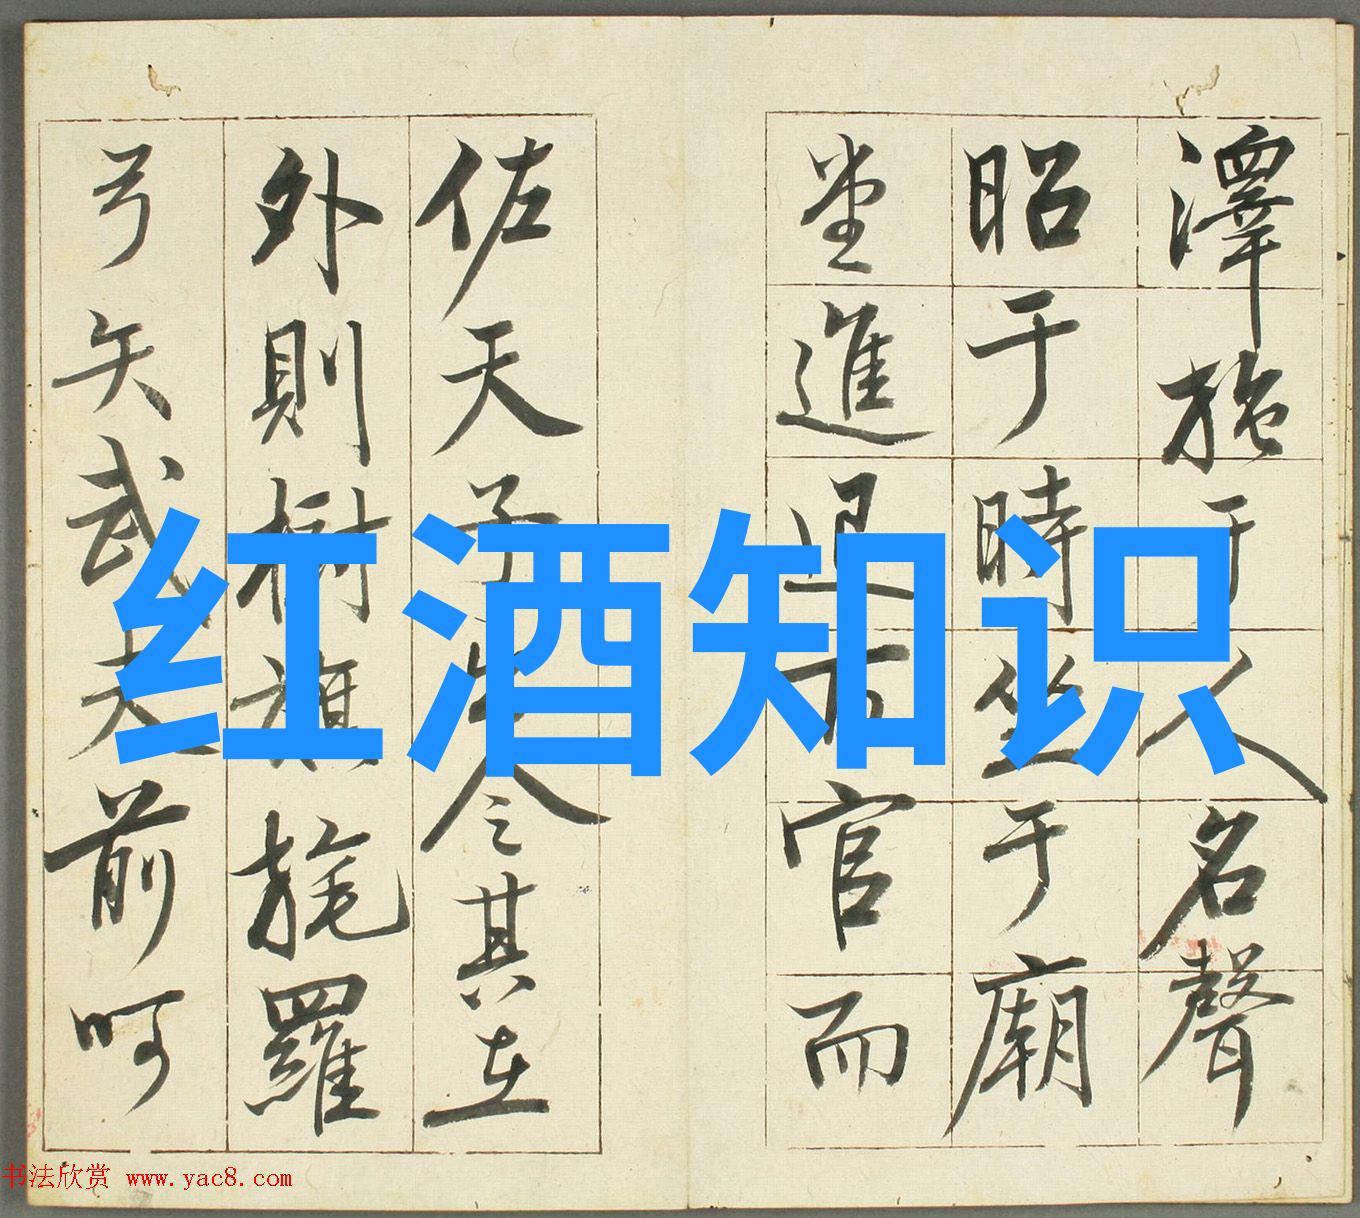 澤施于人名聲
昭于時坐于廟
堂進退百官而
佐天子出令其在
外則樹旗旄羅
弓矢武夫前呵
红酒知识
书法欣赏 www.yac8.com